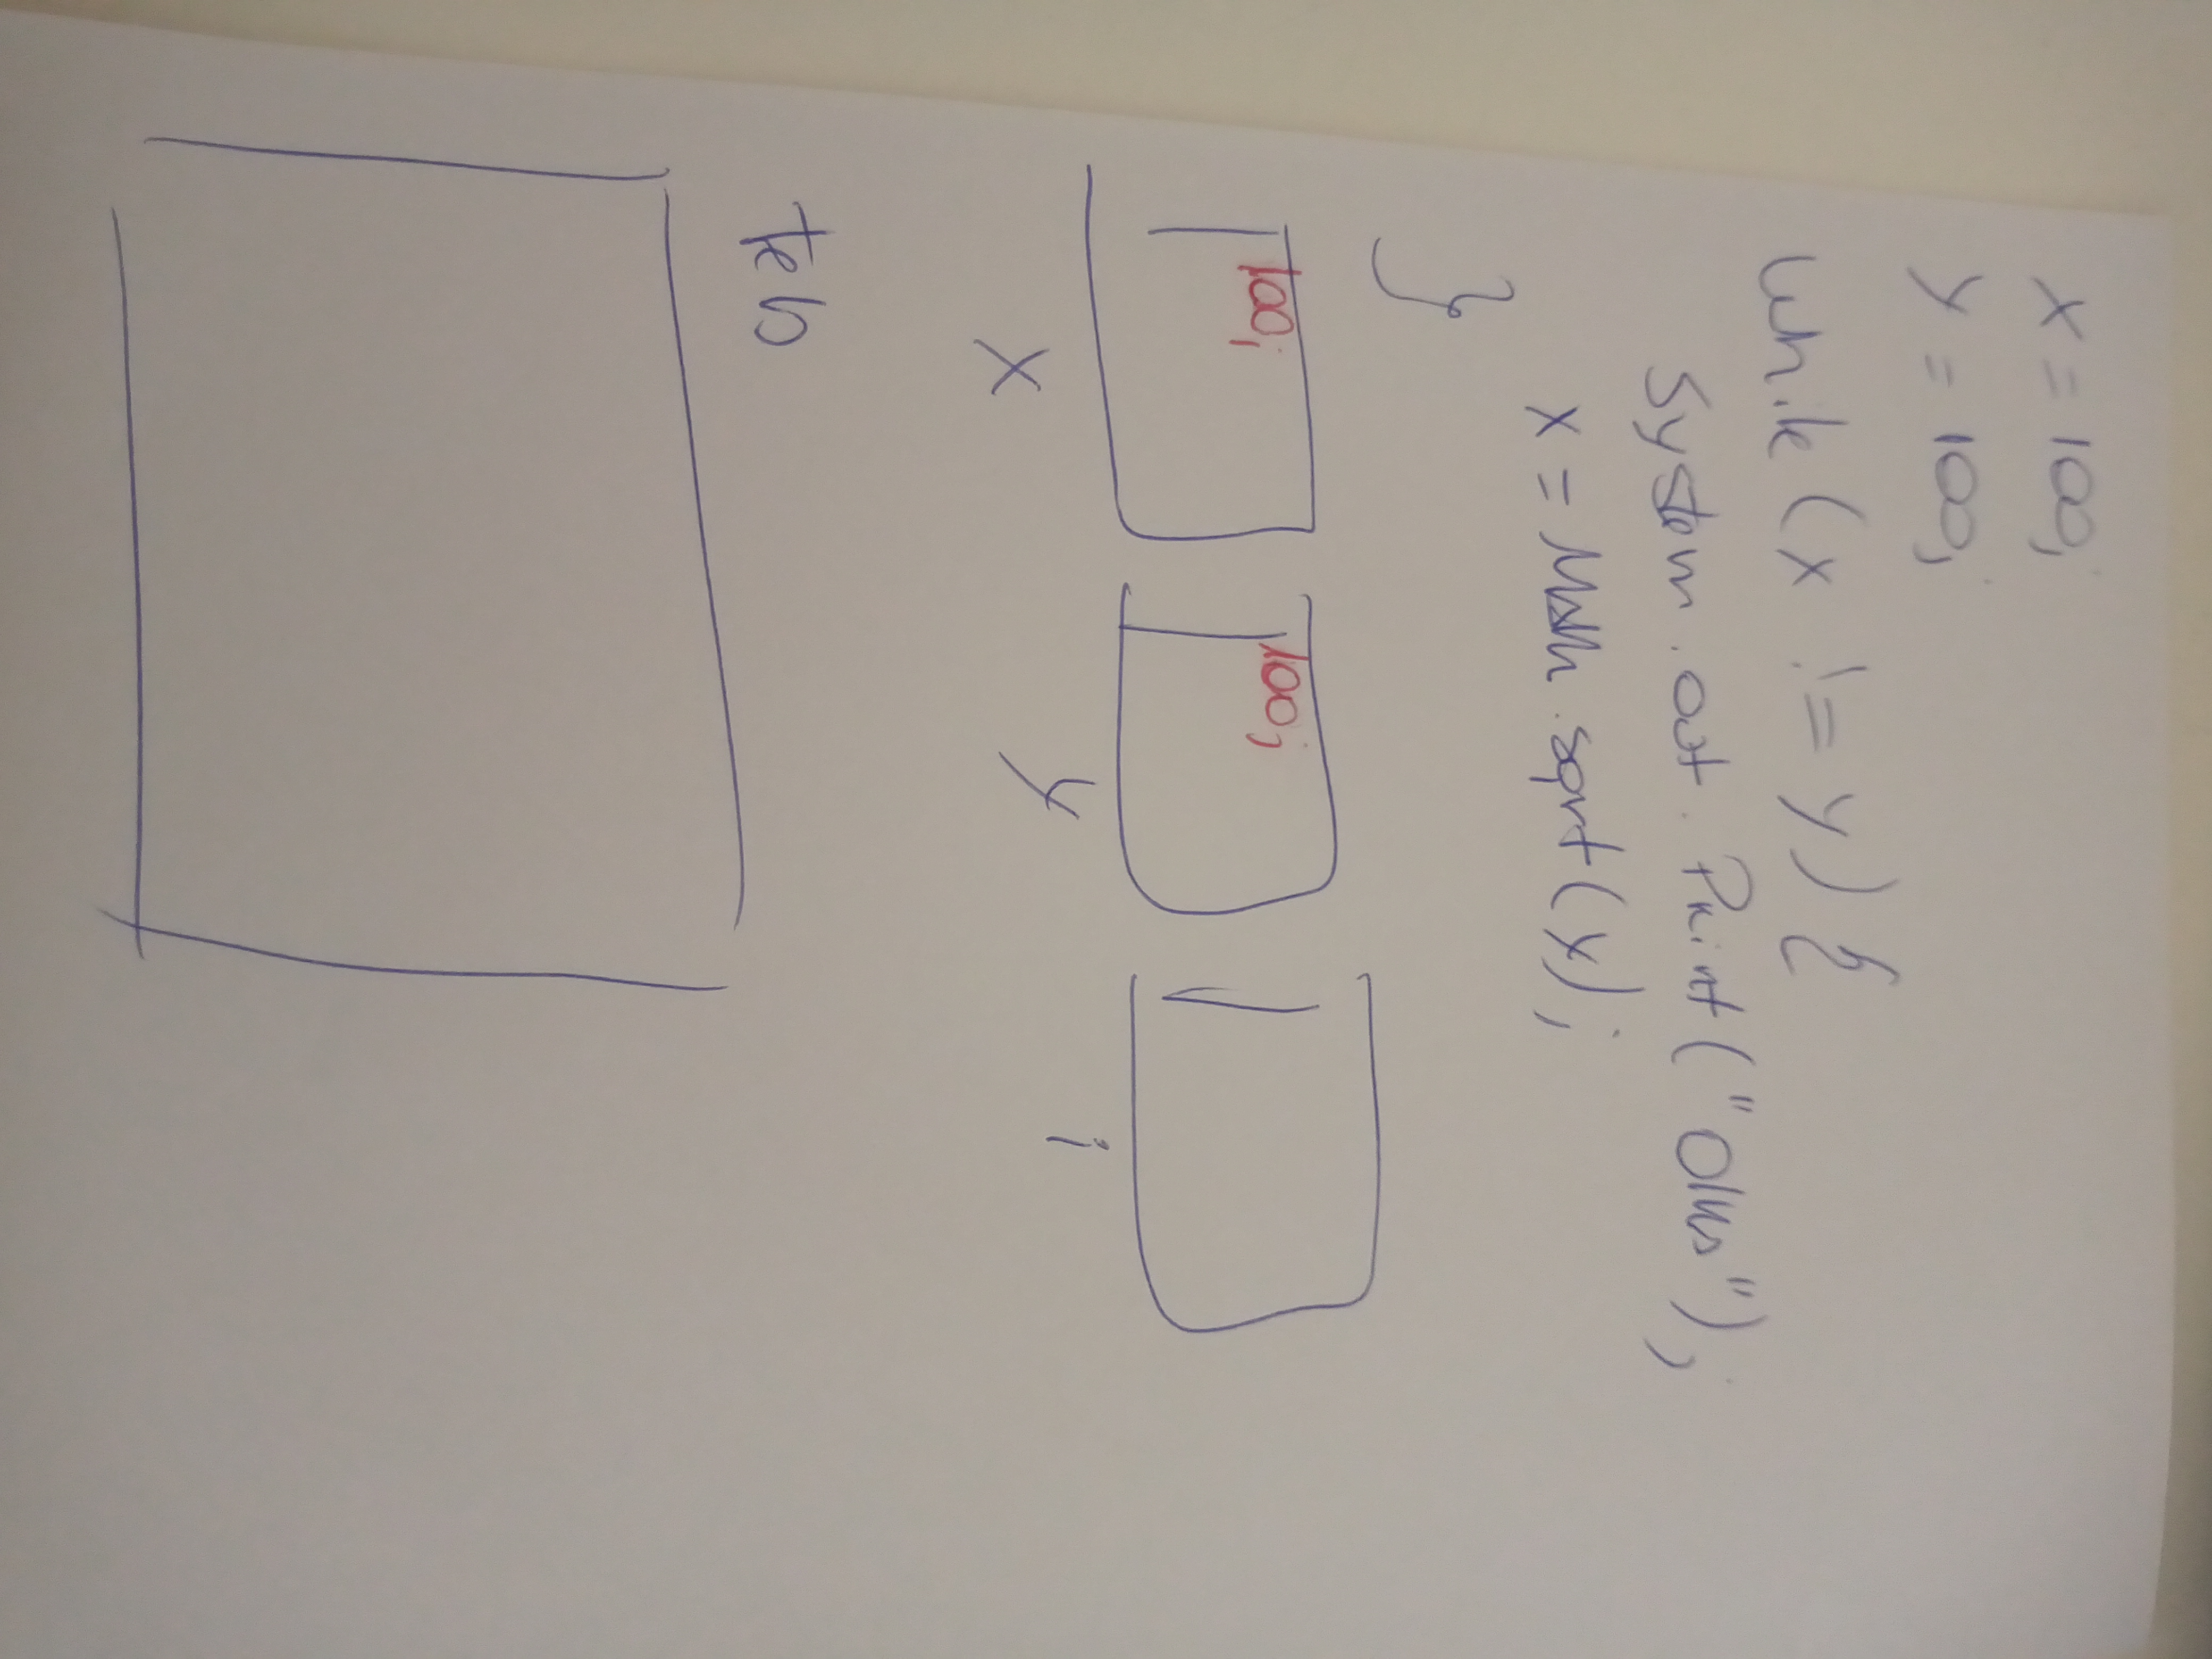 x = 100;
y = 100;
while (x != y) {
System.out.Print("Olha");
x = Math.sqrt(x);
}
100; 100;
x y i
tela